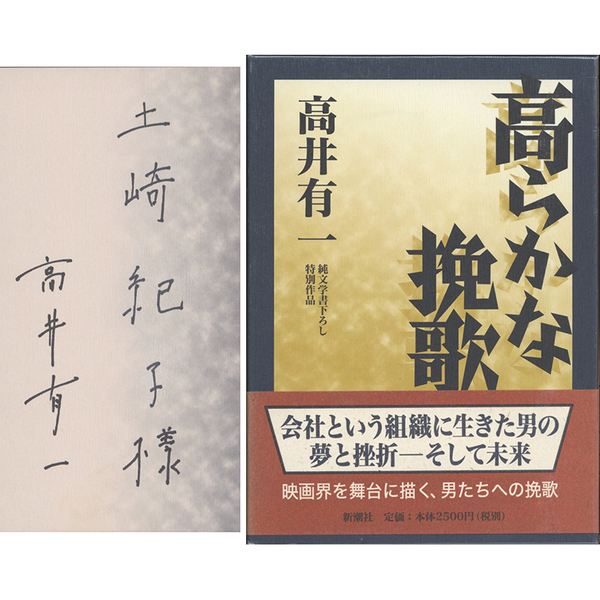 土崎紀子様
高井有一
高らかな
挽歌
高井有一
純文学書下ろし
特別作品
会社という組織に生きた男の
夢と挫折―そして未来
映画界を舞台に描く、男たちへの挽歌
新潮社 定価:本体2500円(税別)